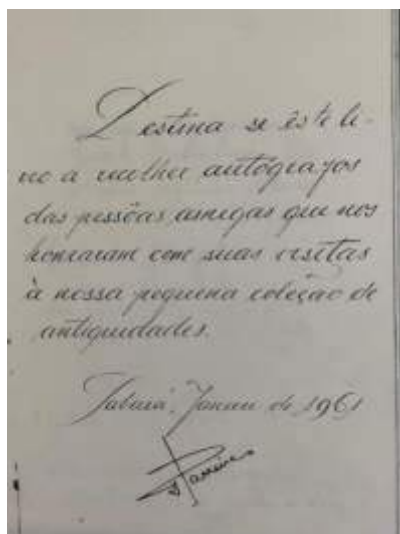 Destina se êste li-
vro a colher autógrafos
das pessôas amigas que nos
honraram com suas visitas
à nossa pequena coleção de
antiguidades.
Sabará, Janeiro de 1961